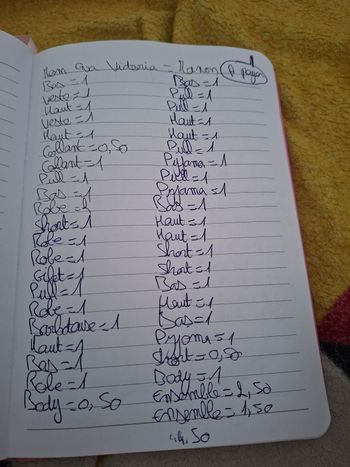 1
Eva Victoria = Manon (A payer)
Bas = 1
Veste = 1
Haut = 1
Veste = 1
Haut = 1
Collant = 0,50
Collant = 1
Pull = 1
Bas = 1
Robe =
Short = 1
Robe = 1
Robe = 1
Gilet = 1
Pull = 1
Robe = 1
Barboteuse = 1
Haut = 1
Bas = 1
Robe = 1
Body = 0,50
Bas = 1
Pull = 1
Pull = 1
Haut = 1
Haut = 1
Pull = 1
Pyjama = 1
Pull = 1
Pyjama = 1
Bas = 1
Haut = 1
Haut = 1
Short = 1
Short = 1
Bas = 1
Haut = 1
Bas = 1
Pyjama = 1
Short = 0,50
Body = 1
Ensemble = 2,50
Ensemble = 1,50
4,50